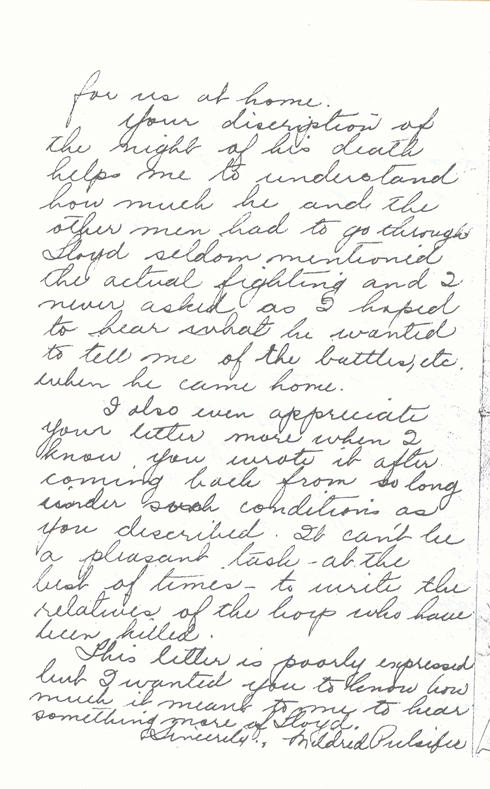 for us at home.
Your discription of
the night of his death
helps me to understand
how much he and the
other men had to go through
Lloyd seldom mentioned
the actual fighting and I
never asked as I hoped
to hear what he wanted
to tell me of the battles, etc.
when he came home.
I also even appreciate
your letter more when I
know you wrote it after
coming back from so long
under such conditions as
you described. It can't be
a pleasant task - at the
best of times - to write the
relatives of the boys who have
been killed.
This letter is poorly expressed
but I wanted you to know how
much it meant to me to hear
something more of Lloyd.
Sincerely, Mildred Pulsifer